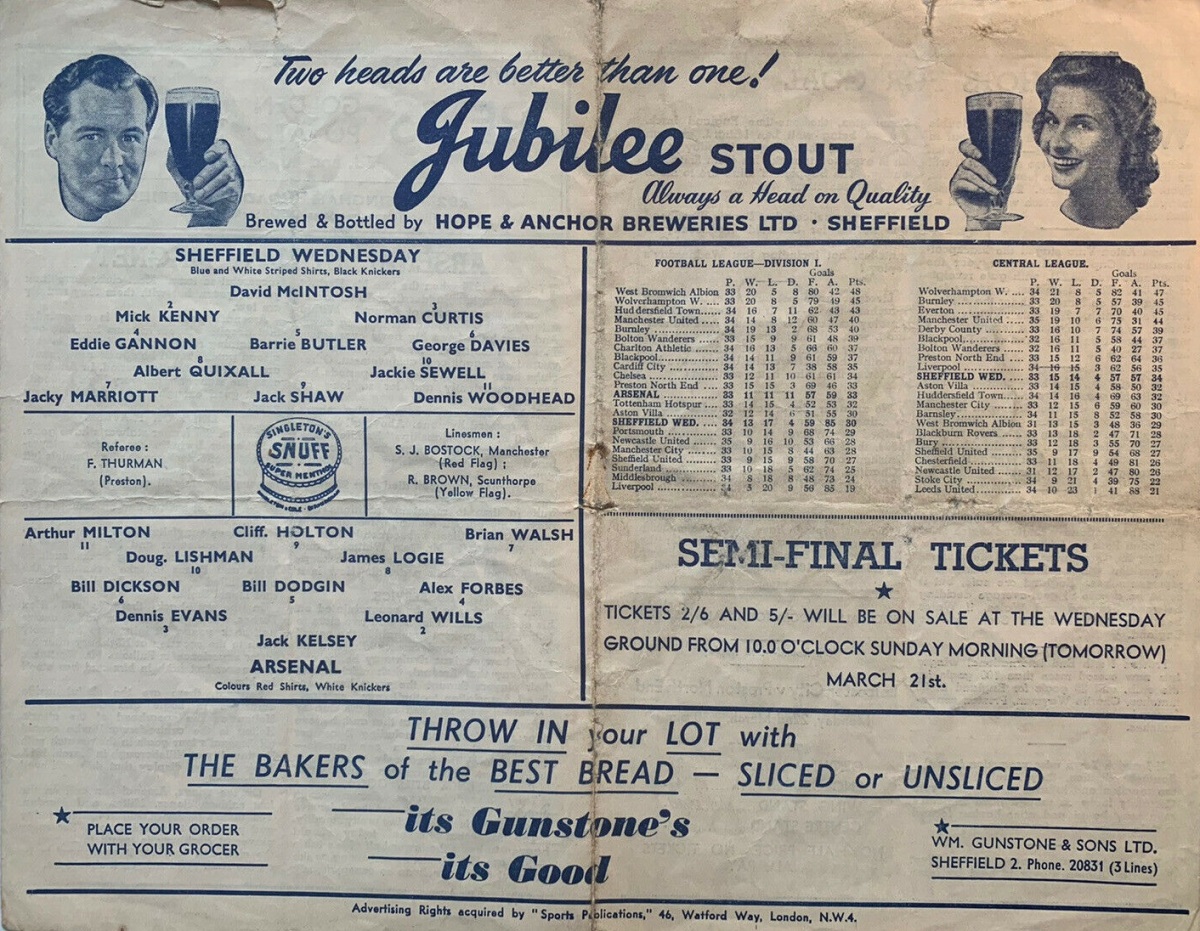 Two heads are better than one!
Jubilee STOUT
Always a Head on Quality
Brewed & Bottled by HOPE & ANCHOR BREWERIES LTD · SHEFFIELD
SHEFFIELD WEDNESDAY
Blue and White Striped Shirts, Black Knickers
David McINTOSH
2 3
Mick KENNY Norman CURTIS
4 5 6
Eddie GANNON Barrie BUTLER George DAVIES
8 10
Albert QUIXALL Jackie SEWELL
7 9 11
Jacky MARRIOTT Jack SHAW Dennis WOODHEAD
Referee :
F. THURMAN
(Preston).
SINGLETON'S
SNUFF
SUPER MENTHOL
Linesmen :
S. J. BOSTOCK, Manchester
(Red Flag) ;
R. BROWN, Scunthorpe
(Yellow Flag).
Arthur MILTON Cliff. HOLTON Brian WALSH
11 9 7
Doug. LISHMAN James LOGIE
10 8
Bill DICKSON Bill DODGIN Alex FORBES
6 5 4
Dennis EVANS Leonard WILLS
3 2
Jack KELSEY
ARSENAL
Colours Red Shirts, White Knickers
FOOTBALL LEAGUE—DIVISION I.
Goals
P. W. L. D. F. A. Pts.
West Bromwich Albion 33 20 5 8 80 42 48
Wolverhampton W. .... 33 20 8 5 79 49 45
Huddersfield Town...... 34 16 7 11 62 43 43
Manchester United ..... 34 14 8 12 60 47 40
Burnley .................. 34 19 13 2 68 53 40
Bolton Wanderers ...... 33 15 9 9 61 48 39
Charlton Athletic ...... 34 16 13 5 66 60 37
Blackpool................. 34 14 11 9 61 59 37
Cardiff City .............. 34 14 13 7 38 58 35
Chelsea ................... 33 12 11 10 61 61 34
Preston North End ..... 33 15 15 3 69 46 33
ARSENAL ............... 33 11 11 11 57 59 33
Tottenham Hotspur ... 33 14 15 4 52 53 32
Aston Villa .............. 32 12 14 6 51 55 30
SHEFFIELD WED. .... 34 13 17 4 59 85 30
Portsmouth .............. 33 10 14 9 68 74 29
Newcastle United ...... 35 9 16 10 53 66 28
Manchester City ........ 33 10 15 8 44 63 28
Sheffield United ........ 33 9 15 9 58 70 27
Sunderland .............. 33 10 18 5 62 74 25
Middlesbrough ......... 34 8 18 8 48 73 24
Liverpool ................. 5 20 9 56 85 19
CENTRAL LEAGUE.
Goals
P. W. L. D. F. A. Pts.
Wolverhampton W. .... 34 21 8 5 82 41 47
Burnley .................. 33 20 8 5 57 39 45
Everton .................. 33 19 7 7 70 40 45
Manchester United ..... 35 19 10 6 75 31 44
Derby County ........... 33 16 10 7 74 57 39
Blackpool................. 32 16 11 5 58 44 37
Bolton Wanderers ...... 32 16 11 5 40 27 37
Preston North End ..... 33 15 12 6 62 64 36
Liverpool ................. 34 16 15 3 62 56 35
SHEFFIELD WED. .... 33 15 14 4 57 57 34
Aston Villa .............. 33 14 15 4 58 50 32
Huddersfield Town...... 34 14 16 4 69 63 32
Manchester City ........ 33 12 15 6 59 60 30
Barnsley.................. 34 11 15 8 52 58 30
West Bromwich Albion 31 13 15 3 48 36 29
Blackburn Rovers ...... 33 13 18 2 47 71 28
Bury ...................... 33 12 18 3 55 70 27
Sheffield United ........ 35 9 17 9 54 68 27
Chesterfield ............. 33 11 18 4 49 81 26
Newcastle United ...... 31 12 17 2 47 80 26
Stoke City ............... 34 9 21 4 39 75 22
Leeds United............ 34 10 23 1 41 88 21
SEMI-FINAL TICKETS
TICKETS 2/6 AND 5/- WILL BE ON SALE AT THE WEDNESDAY
GROUND FROM 10.0 O'CLOCK SUNDAY MORNING (TOMORROW)
MARCH 21st.
THROW IN your LOT with
THE BAKERS of the BEST BREAD — SLICED or UNSLICED
its Gunstone's
its Good
PLACE YOUR ORDER
WITH YOUR GROCER
WM. GUNSTONE & SONS LTD.
SHEFFIELD 2. Phone. 20831 (3 Lines)
Advertising Rights acquired by "Sports Publications," 46, Watford Way, London, N.W.4.